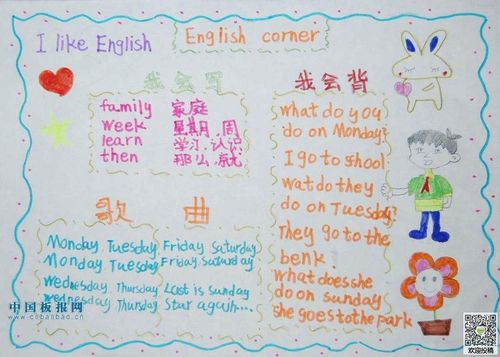 I like English
English corner
我会写
family 家庭
week 星期,周
learn 学习,认识
then 那么,就
我会背
what do you
do on Monday?
I go to school
wat do they
do on Tuesday?
They go to the
benk
what does she
do on sunday
she goes to the park
歌曲
Monday Tuesday Friday saturday
Monday Tuesday Friday saturday
Wednesday Thursday Last is sunday
Wednesday Thursday Star again...
中国板报网
www.cnbanbao.cn
欢迎投稿